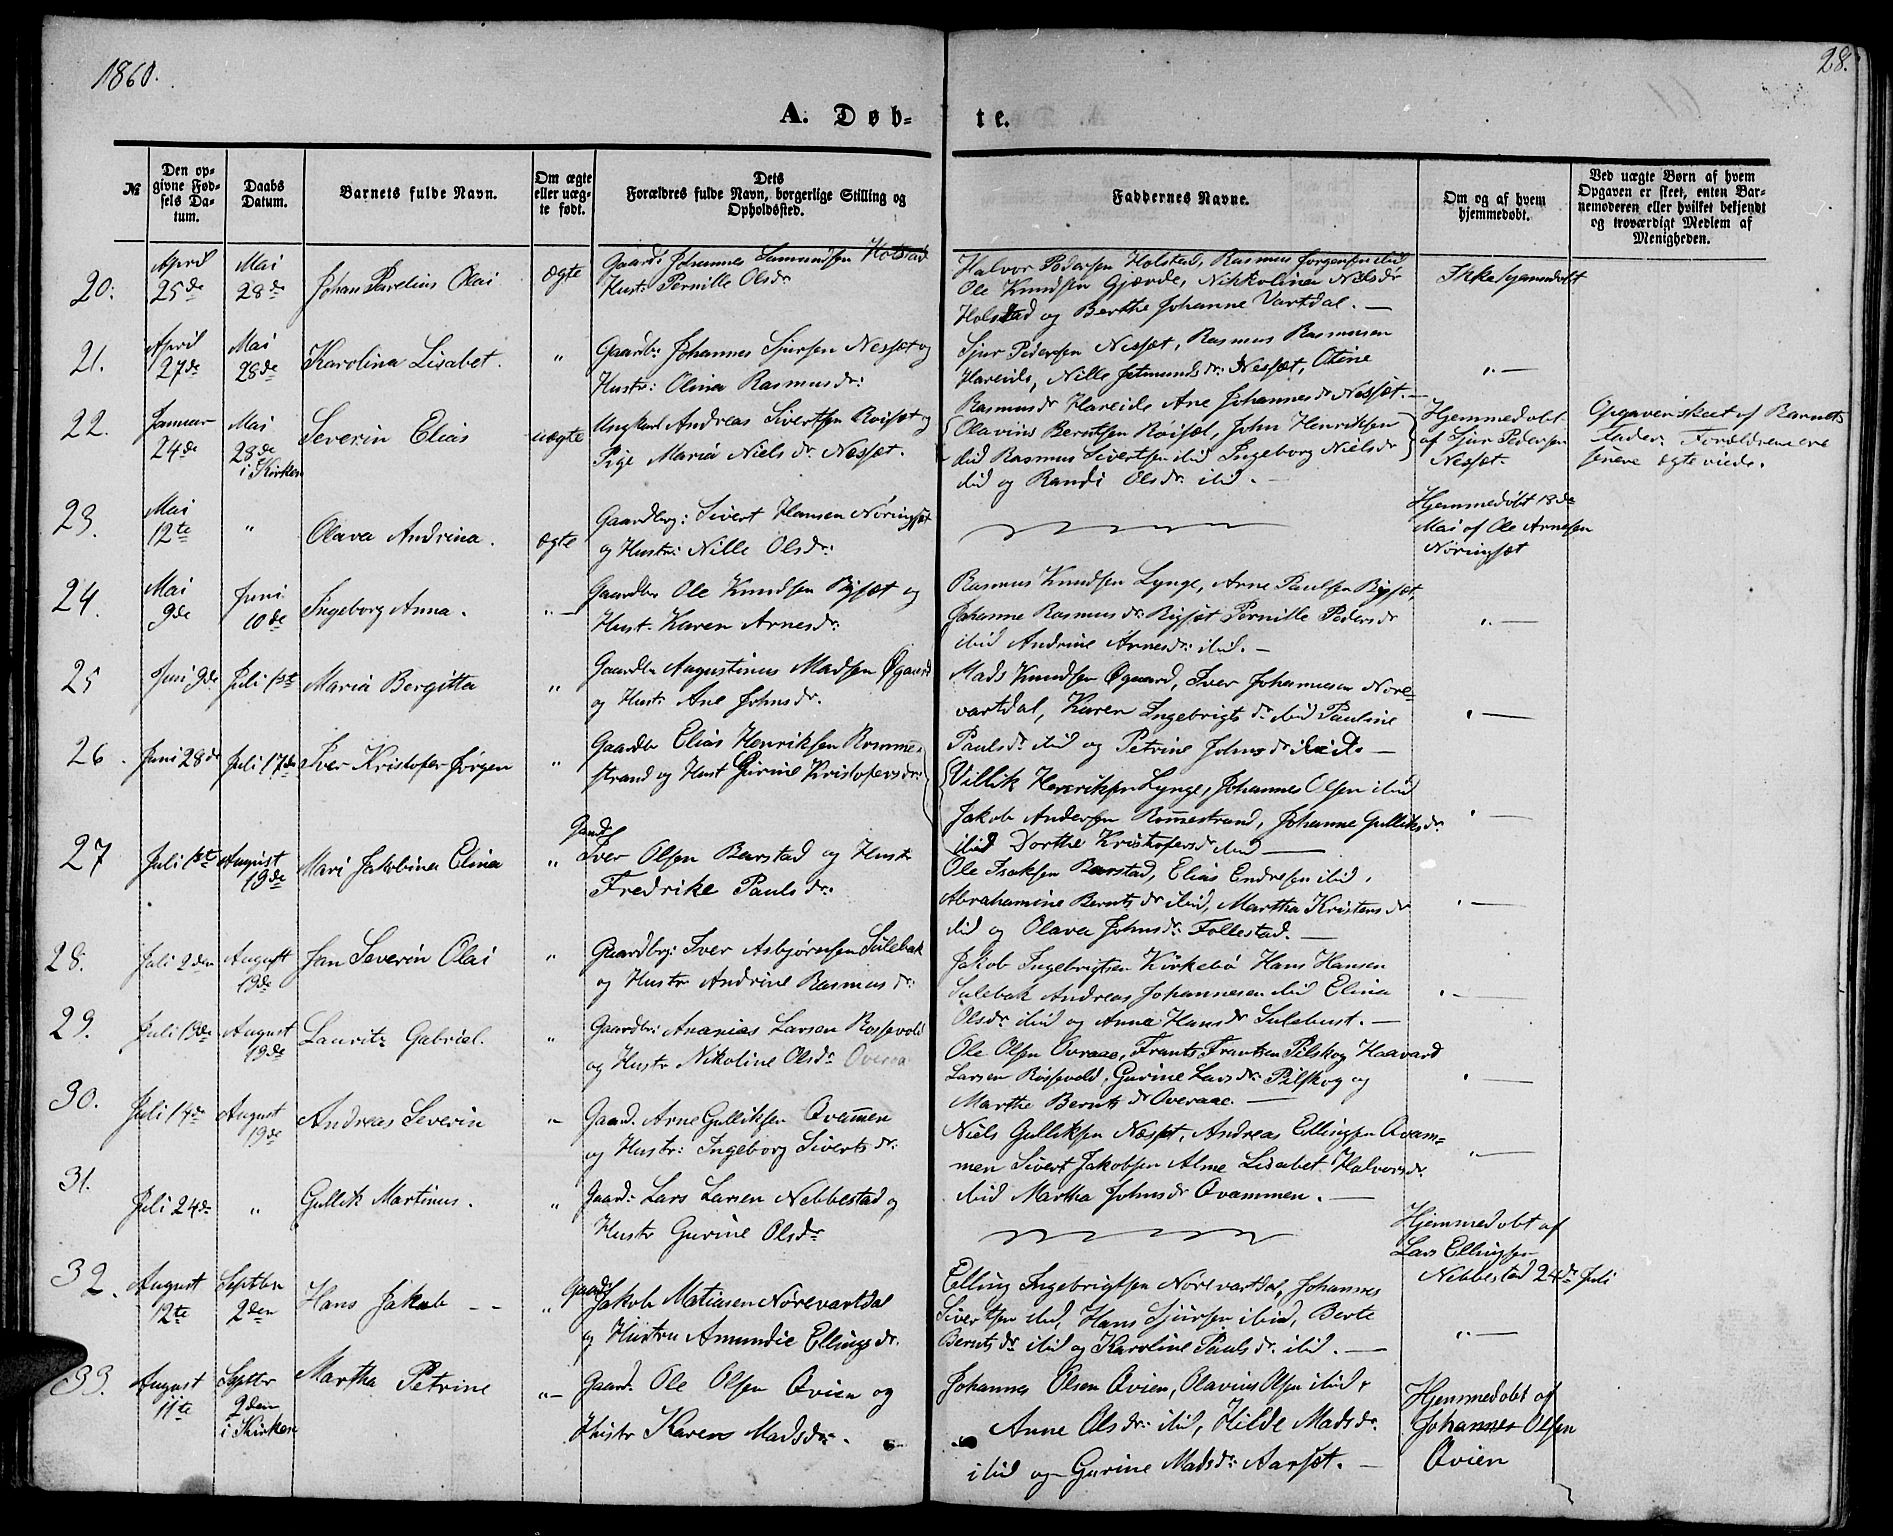 1860.
28.
A. Døb-
te.
№
Den op-
givne Fød-
sels Da-
tum.
Daabs
Datum.
Barnets fulde Navn.
Om ægte
eller uæg-
te født.
Dets
Forældres fulde Navn, borgerlige Stilling og
Opholdssted.
Faddernes Navne.
Om og af hvem
hjemmedøbt.
Ved uægte Børn af hvem
Opgaven er skeet, enten Bar-
nemoderen eller hvilket bekjendt
og troværdigt Medlem af
Menigheden.
20.
April
25de
Mai
28de
Johan Parelius Olai
ægte
Gaardb: Johannes Samundsen Holstad
Hust: Pernille Olsdr
Halvor Pedersen Holstad, Rasmus Jørgensen ibid
Ole Knudsen Gjærde, Nikkolina Nilsdr
Holstad og Berthe Johanne Vartdal. —
Ikke hjemmedøbt
21.
April
27de
Mai
28de
Karolina Lisabet.
"
Gaardb: Johannes Sjursen Nessæt og
Hustr: Olina Rasmusdr:
Sjur Pedersen Nessæt, Rasmus Rasmusen
Hareide, Nille Jetmundsdr: Nessæt, Otine
Rasmusdr Hareide Ane Johannesdr Nessæt. —
" —
22.
Januar
24de
Mai
28de
i Kirken
Severin Elias
uægte
Ungkarl Andreas Sivertsen Røisæt og
Pige Maria Nielsdr. Nessæt.
Olavius Berntsen Røisæt, John Henriksen
ibid Rasmus Sivertsen ibid Ingeborg Nielsdr
ibid og Randi Olsdr. ibid. —
Hjemmedøbt
af Sjur Pedersen
Nessæt.
Opgaven skeet af Barnets
Fader. Forældrene ere
senere ægteviede.
23.
Mai
12te
"
Olava Andrina.
ægte
Gaardbrg: Sivert Hansen Nøringsæt
og Hustr: Nille Olsdr:
Hjemmedøbt 18de
Mai af Ole Arnesen
Nøringsæt
24.
Mai
9de
Juni
10de
Ingeborg Anna.
" —
Gaardbr Ole Knudsen Rysæt og
Hust. Karen Arnesdr:
Rasmus Knudsen Lynge, Arne Paulsen Rysæt,
Johanne Rasmusdr. Rysæt Pernille Pedersdr
ibid Andrine Arnesdr: ibid. —
" —
25
Juni 9de
Juli 1ste
Maria Bergitta
"
Gaardbr Augustinus Madsen Øgaard
og Hustr: Ane Johnsdr.
Mads Knudsen Øgaard, Iver Johannesen Nore-
vartdal, Karen Ingebrigtsdr. ibid Pauline
Paulsdr. ibid og Petrine Johnsdr ibid. —
" —
26
Juni 28de
Juli 17de
Iver Kristofer Jørgen
"
Gaardbr Elias Henriksen Romme-
strand og Hust Gurine Kristofersdr:
Villik Henriksen Lynge, Johannes Olsen ibid
Jakob Andersen Rommestrand, Johanne Gulliksdr.
ibid Dorthe Kristofersdr ibid —
" —
27
Juli 1ste
August
19de
Mari Jakobina Elina
"
Gaardb
Iver Olsen Barstad og Hustr
Fredrike Paulsdr:
Ole Isaksen Barstad, Elias Endresen ibid.
Abrahamine Berntsdr ibid, Martha Kristensdr
ibid og Olava Johnsdr: Follestad. —
" —
28.
Juli 2den
August
19de
Jan Severin Olai
"
Gaardbrg: Iver Asbjørnsen Sulebak
og Hustr Andrine Rasmusdr:
Jakob Ingebrigtsen Kirkebø Hans Hansen
Sulebak Andreas Johannesen ibid Elina
Olsdr. ibid og Anne Hansdr Sulebust. —
" —
29.
Juli 13de
August
19de
Lauritz Gabriel.
"
Gaardbr: Ananias Larsen Rossevold
og Hustr Nikoline Olsdr. Overaa
Ole Olsen Ovraae, Frants Frantsen Pilskog Haavard
Larsen Rossevold, Gurine Larsdr: Pilskog og
Marthe Berntsdr Overaae. —
" —
30.
Juli 14de
August
19de
Andreas Severin
"
Gaard. Arne Gulliksen Qvammen
og Hustr: Ingeborg Sivertsdr:
Niels Gulliksen Næsset, Andreas Ellingsen Qvam-
men Sivert Jakobsen Alme Lisabet Halvorsdr.
ibid Martha Johnsdr Qvammen. —
" —
31.
Juli 24de
"
Gullik Martinus.
"
Gaard: Lars Larsen Nebbestad og
Hustr Gurine Olsdr
Hjemmedøbt af
Lars Ellingsen
Nebbestad 24de Juli
32.
August
12te
Septbr
2den
Hans Jakob
"
Gaardb
Jakob Matiasen Nørevartdal
og Hustru Amundie Ellingsdr.
Elling Ingebrigtsen Norevartdal, Johannes
Sivertsen ibid, Hans Sjursen ibid, Berte
Berntsdr ibid og Karoline Paulsdr. ibid. —
" —
33.
August
11te
Septbr
9den
i Kirken
Martha Petrine
" —
Gaard: Ole Olsen Qvien og
Hustr Karen Madsdr:
Johannes Olsen Qvien, Olavius Olsen ibid,
Anne Olsdr: ibid, Hilde Madsdr.
ibid og Gurine Madsdr: Aarsæt. —
Hjemmedøbt af
Johannes Olsen
Qvien